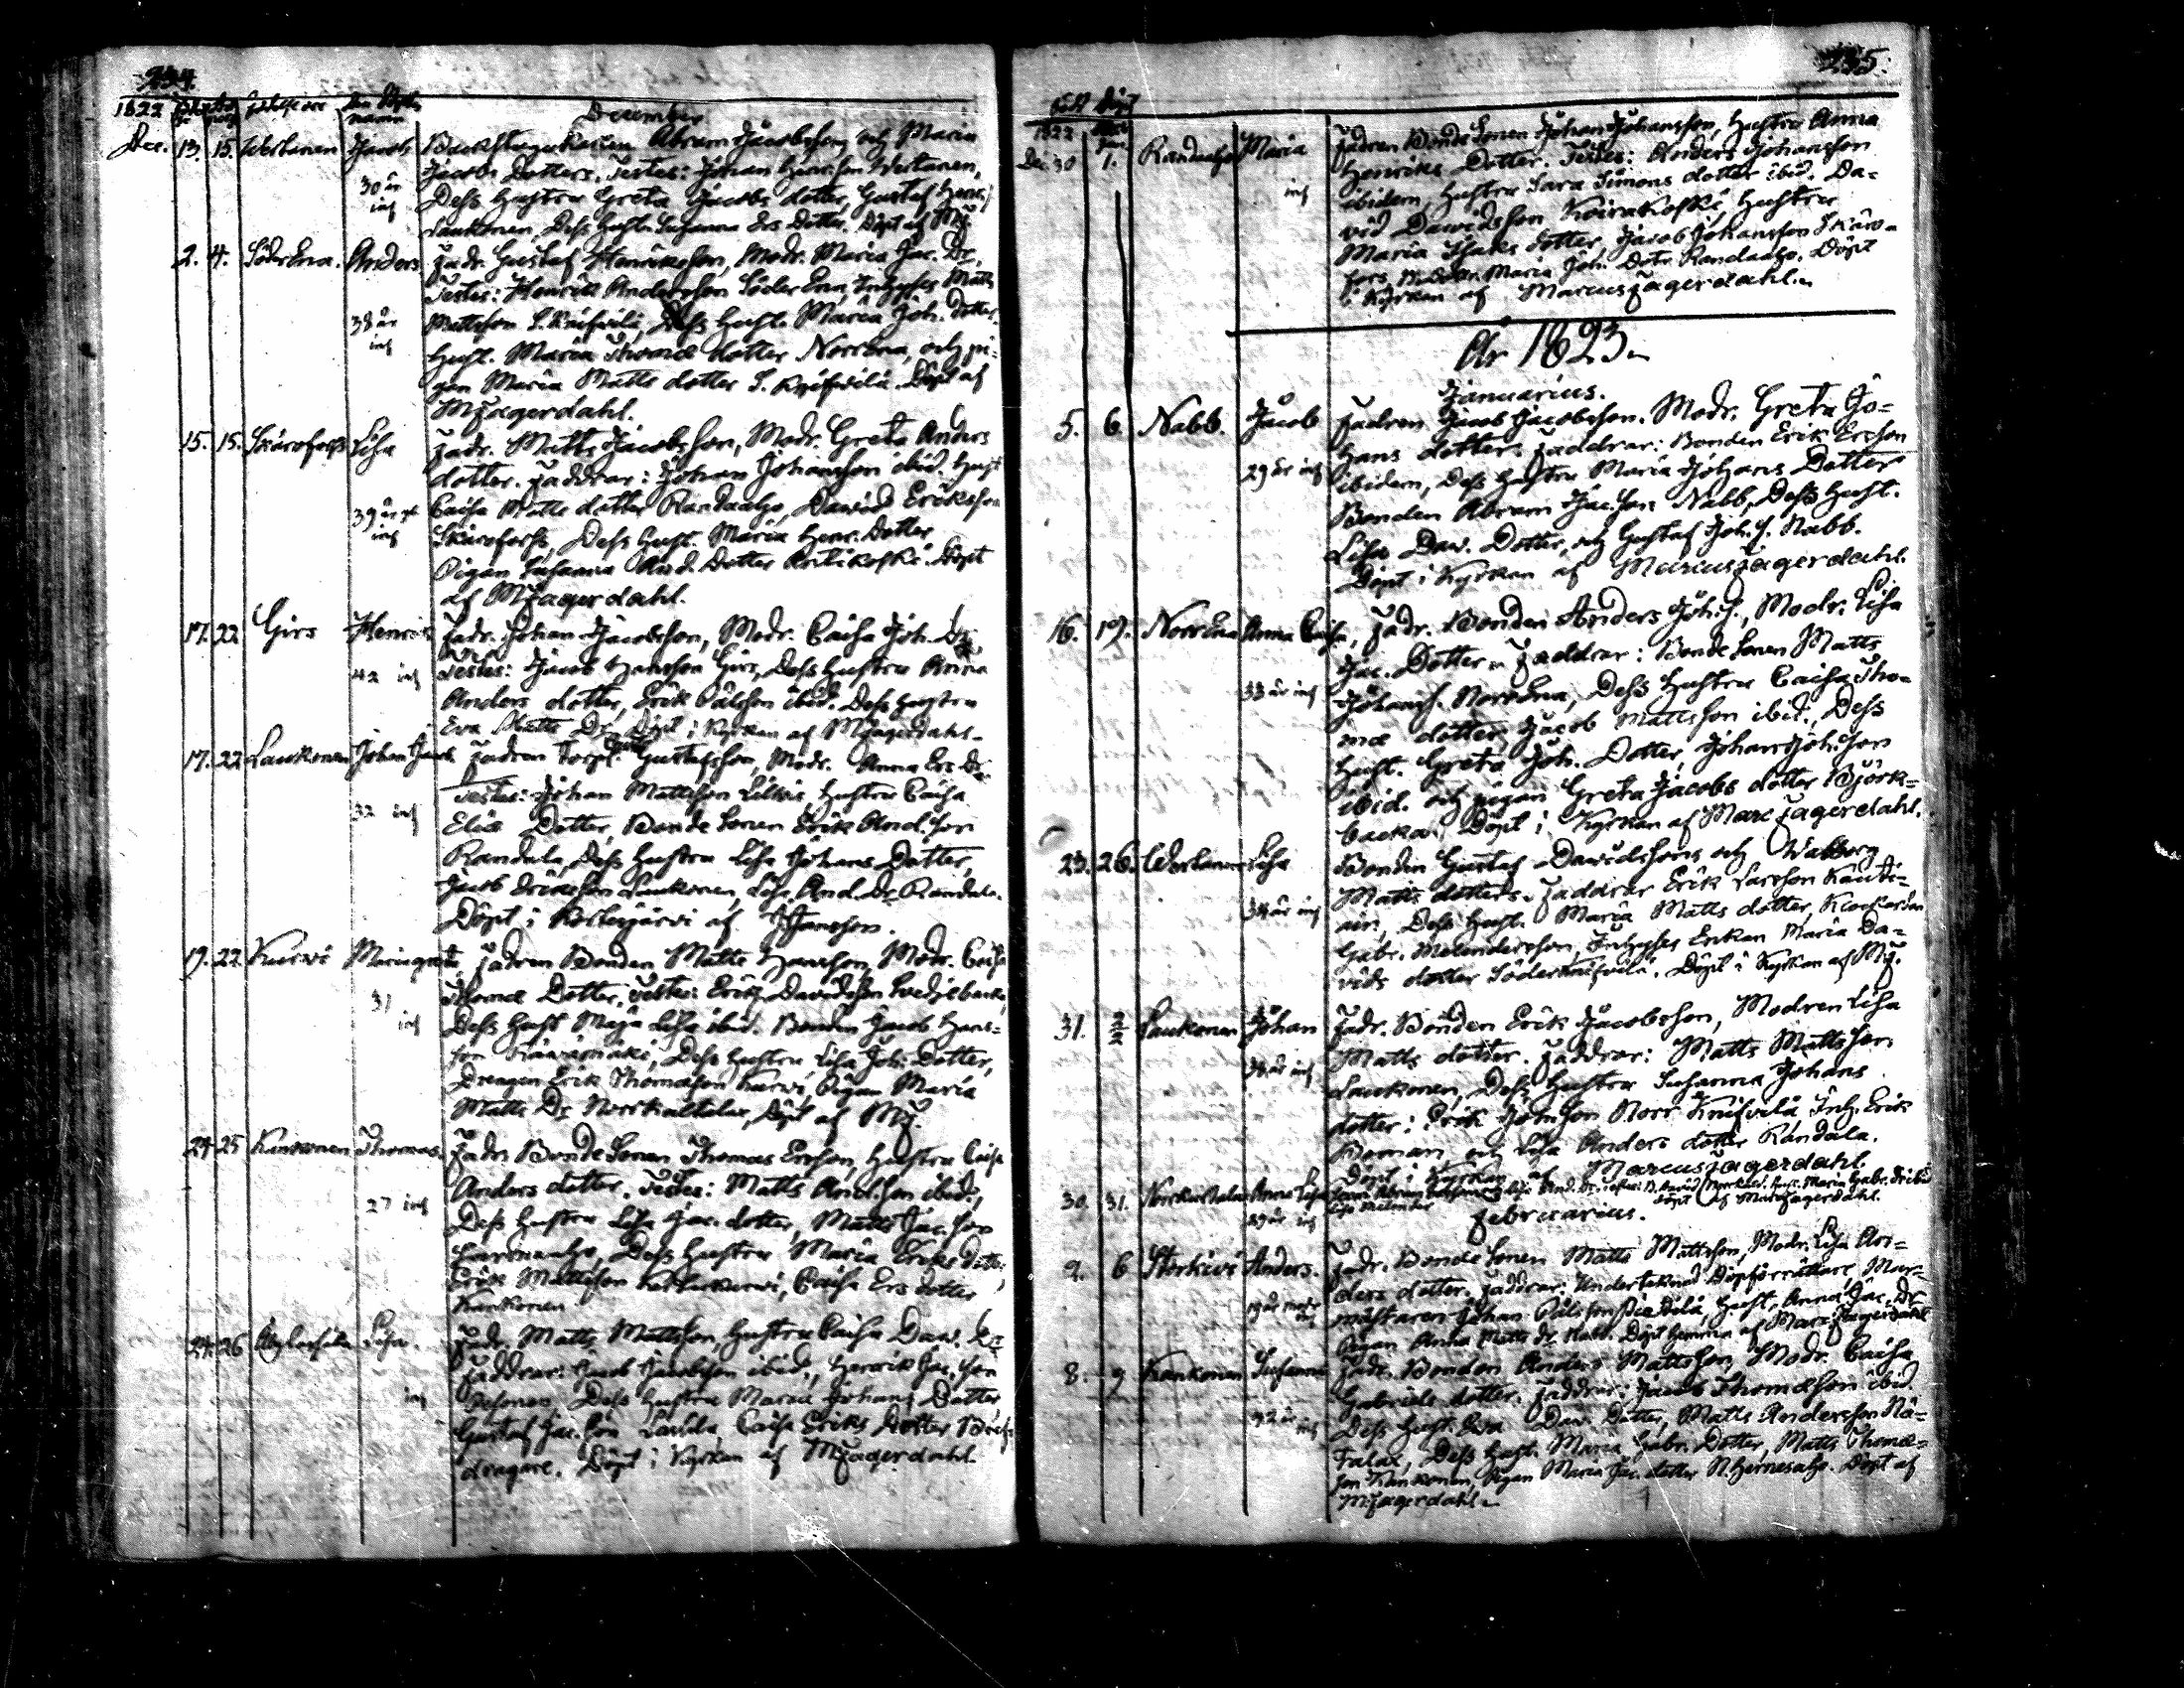 234.
1822 Födelse ort Den Döptes namn December
Dec. 13. 15. Wertanen Jacob Backstugu Karlen Abram Jacobsson och Maria
Jacobs Dotter. Testes: Johan Henr.son Wertanen,
30 år Dess Hustru Greta Jacobs dotter, Gustaf Henr.
ins Laukonen, Dess Hust. Susanna Ers Dotter. Döpt af MF.
2. 4. Söder Ena. Anders. Fadr. Gustaf Henriksson, Modr. Maria Jac. Dr.
Testes: Henrik Andersson Söder Ena, Inhyses Matts
38 år Mattsson S. Knifvilä, Dess Hust. Maria Joh. dotter,
ins Hust. Maria Thomæ dotter NorrEna, och pi-
gan Maria Matts dotter S. Knifvilä. Döpt af
MFagerdahl.
15. 15. Skarsforss Lisa Fadr. Matts Jacobsson, Modr. Greta Anders
dotter. Faddrar: Johan Johansson ibid. Hust
39 år Caisa Matts dotter Randaaho, Dawid Eriksson
ins Skarsforss, Dess Hust. Maria Henr. Dotter
Pigan Susanna And. Dotter Döpt
af MFagerdahl.
17. 22 Girs Henric Fadr. Johan Jacobsson, Modr. Caisa Joh. Dr.
42 ins Testes: Jacob Hansson Girs, Dess Hustru Anna
Anders dotter, Erik Pålsson ibid. Dess Hustru
Eva Matts Dr. Döpt i Kyrkan af MFagerdahl.
17. 22 Laukonen Johan Jacob Fadren Torp. Gustafsson, Modr. Anna Ers Dr.
32 ins Testes: Johan Mattsson Hustru Caisa
Eliæ Dotter, Bonde Sonen Erik And.son
Randala, Dess Hustru Lisa Johans Dotter,
Jacob Eriksson Laukonen, Lisa And. Dr. Randala.
Döpt i Kortesjärvi af
19. 22 Kurwi Mariagreta. Fadren Bonden Matts Hansson, Modr. Caisa
31 Thomæ Dotter, Testes: Erik Davidsson
ins Dess Hust Maja Lisa ibid. Bonden Jacob Hans-
son Dess Hustru Lisa Joh. Dotter,
Drengen Erik Thomæson Kurwi, Pigan Maria
Matts Dr. Döpt af MF.
24 25 Kankonen Thomas. Fadr. Bonde Sonen Thomas Ersson, Hustru Caisa
Anders dotter. Testes: Matts And.son ibid.,
27 ins Dess Hustru Lisa Jac. dotter, Matts Jac.son
Dess Hustru Maria Eriks dotter,
Erik Mattsson Caisa Ers dotter
Kankonen
24. 26 Lisa. Fadr. Matts Mattsson, Hustru Caisa Daw. Dr.
Faddrar: Jacob Jacobsson ibid., Henrik Jac.son
ins Dess Hustru Maria Johans Dotter
Gustaf Jac.son Caisa Eriks Dotter
dragare. Döpt i Kyrkan af MFagerdahl.
235.
född Döpt
1822 Jan
Dec 30 1. Randaaho Maria Fadren Bonde Sonen Johan Johansson, Hustru Anna
Henriks Dotter. Testes: Anders Johansson
ins ibidem, Hustru Sara Simons dotter ibid. Da-
vid Dawidsson Koirakoski Hustru
Maria Isaks dotter, Jacob Johansson Skars-
fors, Maria Joh. Dotr. Randaaho. Döpt
i Kyrkan af Marcus Fagerdahl.
År 1823.
Januarius.
5. 6 Nabb. Jacob Fadren Jacob Jacobsson. Modr. Greta Jo-
hans dotter. Faddrar: Bonden Erik Ersson
29 år ins ibidem, Dess Hustru Maria Johans Dotter
Bonden Abram Jac.son Nabb, Dess Hust.
Lisa Daw. Dotter, och Gustaf Joh. s. Nabb.
Döpt i Kyrkan af Marcus Fagerdahl.
16. 19. NorrEna Anna Caisa, Fadr. Bonden Anders Joh. s., Modr. Lisa
Jac. Dotter. Faddrar: Bonde Sonen Matts
33 år ins Johans. NorrEna, Dess Hustru Caisa Tho-
mæ dotter, Jacob Mattsson ibid., Dess
Hust. Greta Joh. Dotter, Johan Joh.son
ibid. och pigan Greta Jacobs dotter Björk-
backa. Döpt i Kyrkan af Marc Fagerdahl.
23. 26. Wertanen Lisa Bonden Gustaf Dawidssons och Walborg
Matts dotters. Faddrar Erik Larsson
34 år ins Dess Hust. Maria Matts dotter, Klockaren
Gabr. Melendersson, Inhyses Enkan Maria Da-
vids dotter Söderknifvilä. Döpt i Kyrkan af MF.
31. 2/2 Laukonen Johan Fadr. Bonden Erik Jacobsson, Modren Lisa
Matts dotter. Faddrar: Matts Mattsson
36 år ins Laukonen, Dess Hustru Susanna Johans
dotter: Erik Joh.son Norr Knifvilä Inh. Erik
Boman och Lisa Anders dotter Randala.
Döpt i Kyrkan af Marcus Fagerdahl.
30. 31. Anna Lisa
29 år ins döpt af Marc Fagerdahl.
Februarius.
9. 6 Störkivi Anders. Fadr. Bonde Sonen Matts Mattsson, Modr. Lisa An-
ders dotter. Faddrar: Undertecknad Döpförrättare, Mur-
mästaren Johan Pålsson Hust. Anna Jac. Dr
Pigan Anna Matts dr. Nabb. Döpt hemma af Marc Fagerdahl
8. 9 Kankonen Susanna Fadr. Bonden Anders Mattsson, Modr. Caisa
Gabriels dotter. Faddrar: Jacob Thomæson ibid.
32 år ins Dess Hust. Eva Daw. Dotter, Matts Andersson
Dess Hust. Maria Gabr. Dotter, Matts Thomæ-
son Kankonen, Pigan Maria Jac. dotter N. Hernesaho. Döpt af
MFagerdahl.